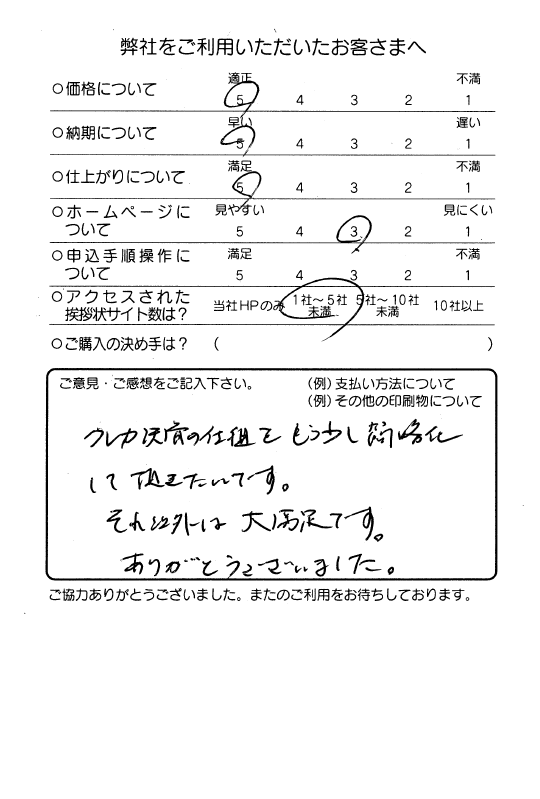 弊社をご利用いただいたお客さまへ
○価格について 適正 5 4 3 2 1 不満
○納期について 早い 5 4 3 2 1 遅い
○仕上がりについて 満足 5 4 3 2 1 不満
○ホームページについて 見やすい 5 4 3 2 1 見にくい
○申込手順操作について 満足 5 4 3 2 1 不満
○アクセスされた挨拶状サイト数は? 当社HPのみ 1社〜5社未満 5社〜10社未満 10社以上
○ご購入の決め手は? ( )
ご意見・ご感想をご記入下さい。 (例)支払い方法について
(例)その他の印刷物について
クレカ決済の仕組をもう少し簡略化
して頂きたいです。
それ以外は大満足です。
ありがとうございました。
ご協力ありがとうございました。またのご利用をお待ちしております。